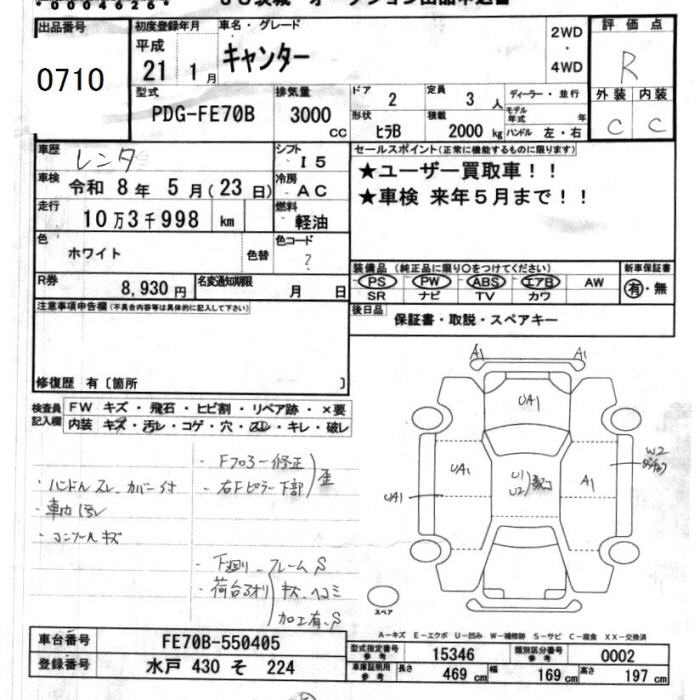 *00046626*
出品番号 初度登録年月 車名・グレード 2WD・4WD 評価点
0710 平成 21 1月 キャンター R
型式 排気量 ドア 2 定員 3人 ディーラー・並行 外装 内装
PDG-FE70B 3000cc 形状 ヒラB 積載 2000kg モデル年式 年 ハンドル 左・右 C C
車歴 レンタ シフト I5 セールスポイント(正常に機能するものに限ります)
車検 令和 8年 5月(23日) 冷房 AC ★ユーザー買取車!!
走行 10万3千998 km 燃料 軽油 ★車検 来年5月まで!!
色 ホワイト 色替 色コード ?
装備品(純正品に限り○をつけてください) 新車保証書
R券 8,930円 名変通知期限 月 日 PS PW ABS エアB AW 有・無
SR ナビ TV カワ
注意事項申告欄(不具合内容等は具体的に記入して下さい) 後日品 保証書・取説・スペアキー
修復歴 有〔箇所 〕
検査員記入欄 FW キズ・飛石・ヒビ割・リペア跡・×要
内装 キズ・汚レ・コゲ・穴・スレ・キレ・破レ
A1 A1
UA1
・Fフロアー修正
・右Fピラー下部 歪
・ハンドルスレ カバー付
・車内汚レ
・コンソールキズ
UA1 UA1 U1 U2 A1 W2
・下廻リ フレームS
・荷台アオリ キズ・ヘコミ
加工有、S
スペア
A-キズ E-エクボ U-凹み W-補修跡 S-サビ C-腐食 XX-交換済
車台番号 FE70B-550405 型式指定番号 参考 15346 類別区分番号 参考 0002
登録番号 水戸 430 そ 224 車庫証明用 参考 長さ 469cm 幅 169cm 高さ 197cm